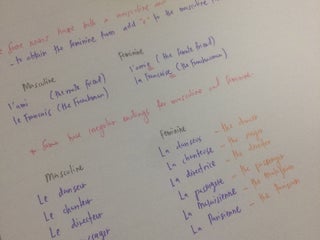 - Some nouns have both a masculine and
- to obtain the feminine form add "e" to the masculine
Masculine Feminine
l'ami (the male friend) l'amie (the female friend)
le Français (the Frenchman) la Française (the Frenchwoman)
* Some have irregular endings for masculine and feminine
Masculine Feminine
Le danseur La danseuse - the dancer
Le chanteur La chanteuse - the singer
Le directeur La directrice - the director
La passagère - the passenger
La
La Parisienne - the Parisian